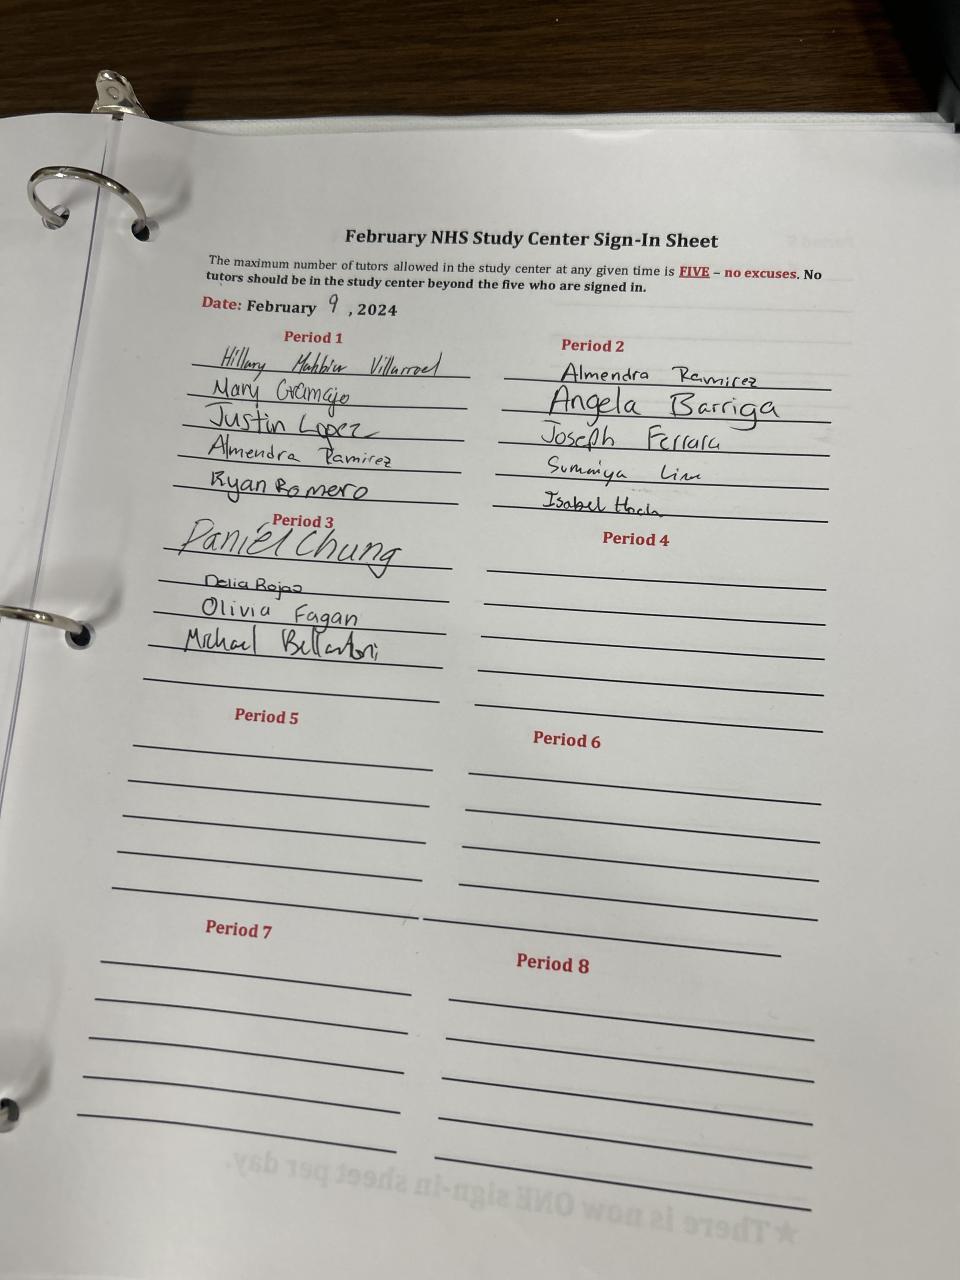 February NHS Study Center Sign-In Sheet
The maximum number of tutors allowed in the study center at any given time is FIVE – no excuses. No
tutors should be in the study center beyond the five who are signed in.
Date: February 9, 2024
Period 1
Hillary Mahbiw Villarroel
Mary Gramajo
Justin Lopez
Almendra Ramirez
Ryan Romero
Period 2
Almendra Ramirez
Angela Barriga
Joseph Ferrara
Summiya Lim
Isabel Hoch
Period 3
Daniel Chung
Delia Rojas
Olivia Fagan
Michael Bellantoni
Period 4
Period 5
Period 6
Period 7
Period 8
★There is now ONE sign-in sheet per day.